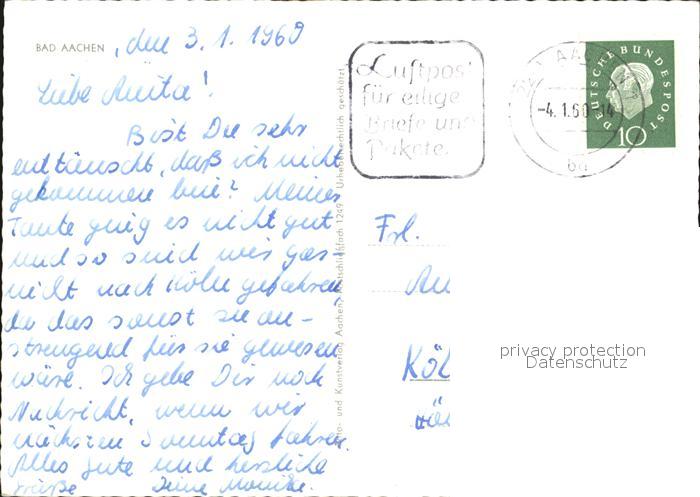 BAD AACHEN, den 3.1.1960
Liebe Anita!
Bist Du sehr
enttäuscht, daß ich nicht
gekommen bin? Meiner
Tante ging es nicht gut
und so sind wir gar-
nicht nach Köln gefahren,
da das sonst zu an-
strengend für sie gewesen
wäre. Ich gebe Dir noch
Nachricht, wenn wir
nächsten Sonntag fahren.
Alles Gute und herzliche
Grüße Deine Monika.
Luftpost
für eilige
Briefe und
Pakete
AACHEN
-4.1.60-14
DEUTSCHE BUNDESPOST
10
Frl.
An
Köl
privacy protection
Datenschutz
Foto- und Kunstverlag Aachen, Postschließfach 1249 · Urheberrechtlich geschützt